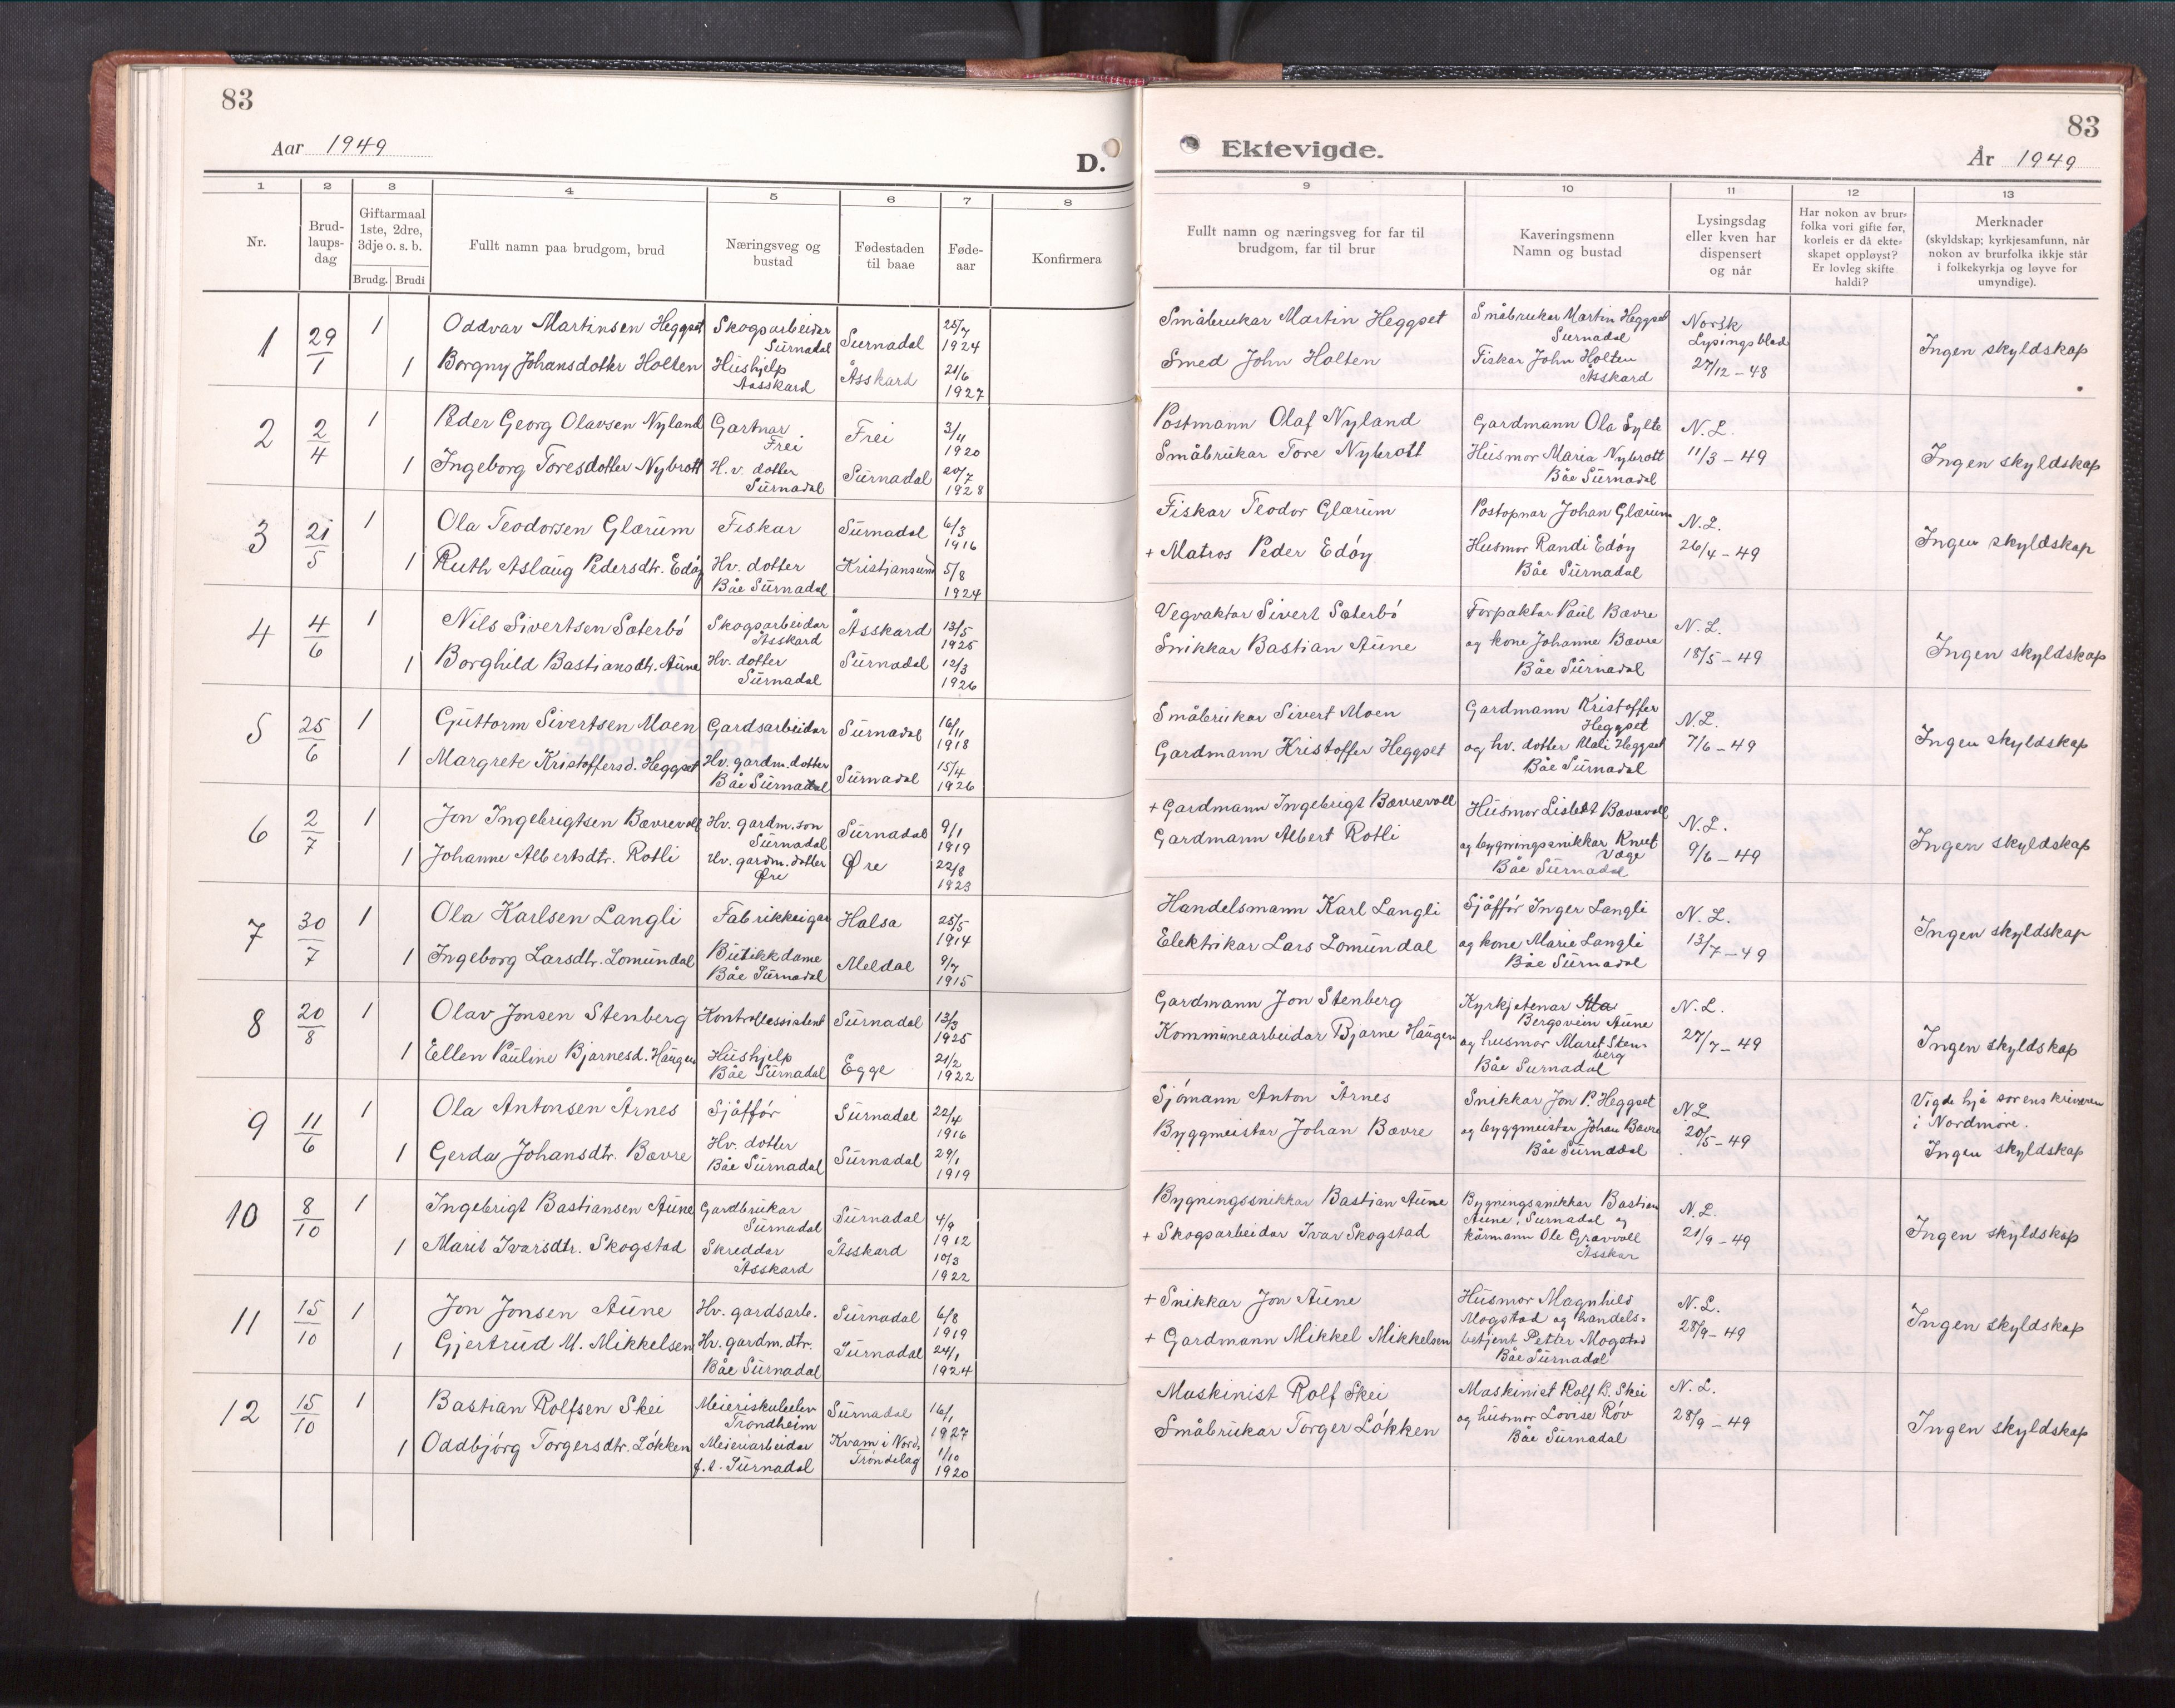 83
Aar 1949
D.
1 2 3 4 5 6 7 8
Nr.
Brud-
laups-
dag
Giftarmaal
1ste, 2dre,
3dje o. s. b.
Brudg. Brudi
Fullt namn paa brudgom, brud
Næringsveg og
bustad
Fødestaden
til baae
Føde-
aar
Konfirmera
1 29/1 1 Oddvar Martinsen Heggset Skogsarbeidar Surnadal Surnadal 25/7 1924
1 Borgny Johansdotter Holten Hushjelp Aasskard Åsskard 21/6 1927
2 2/4 1 Peder Georg Olavsen Nyland Gartnar Frei Frei 3/11 1920
1 Ingeborg Toresdotter Nybrott H.v. dotter Surnadal Surnadal 20/7 1928
3 21/5 1 Ola Teodorsen Glærum Fiskar Surnadal 6/3 1916
1 Ruth Aslaug Pedersdtr. Edøy Hv. dotter Båe Surnadal Kristjansund 5/8 1924
4 4/6 1 Nils Sivertsen Sæterbø Skogsarbeidar Åsskard Åsskard 13/5 1925
1 Borghild Bastiansdtr. Aune Hv. dotter Surnadal Surnadal 12/3 1926
5 25/6 1 Guttorm Sivertsen Moen Gardsarbeidar Surnadal 16/11 1918
1 Margrete Kristoffersd. Heggset Hv. gardm. dotter Båe Surnadal Surnadal 15/4 1926
6 2/7 1 Jon Ingebrigtsen Bævrevoll Hv. gardm. son Surnadal Surnadal 9/1 1919
1 Johanne Albertsdtr. Rotli Hv. gardm. dotter Øre Øre 22/8 1923
7 30/7 1 Ola Karlsen Langli Fabrikkeigar Halsa 25/5 1914
1 Ingeborg Larsdtr. Lomundal Butikkdame Båe Surnadal Meldal 9/7 1915
8 20/8 1 Olav Jonsen Stenberg Kontrollassistent Surnadal 13/3 1925
1 Ellen Pauline Bjarnesd. Haugen Hushjelp Båe Surnadal Egge 21/2 1922
9 11/6 1 Ola Antonsen Årnes Sjåffør Surnadal 22/4 1916
1 Gerda Johansdtr. Bævre Hv. dotter Båe Surnadal Surnadal 29/1 1919
10 8/10 1 Ingebrigt Bastiansen Aune Gardbrukar Surnadal Surnadal 4/9 1912
1 Marit Ivarsdtr. Skogstad Skreddar Åsskard Åsskard 10/3 1922
11 15/10 1 Jon Jonsen Aune Hv. gardsarb. Surnadal 6/8 1919
1 Gjertrud M. Mikkelsen Hv. gardm. dtr. Båe Surnadal Surnadal 24/1 1924
12 15/10 1 Bastian Rolfsen Skei Meieriskuleelev Trondheim Surnadal 16/1 1927
1 Oddbjørg Torgersdtr. Løkken Meieriarbeidar f.t. Surnadal Kvam i Nord-Trøndelag 1/10 1920
83
Ektevigde.
År 1949
9 10 11 12 13
Fullt namn og næringsveg for far til
brudgom, far til brur
Kaveringsmenn
Namn og bustad
Lysingsdag
eller kven har
dispensert
og når
Har nokon av brur-
folka vori gifte før,
korleis er då ekte-
skapet oppløyst?
Er lovleg skifte
haldi?
Merknader
(skyldskap; kyrkjesamfunn, når
nokon av brurfolka ikkje står
i folkekyrkja og løyve for
umyndige).
Småbrukar Martin Heggset Småbrukar Martin Heggset Surnadal Norsk Lysingsblad
Smed John Holten Fiskar John Holten Åsskard 27/12 - 48 Ingen skyldskap
Postmann Olaf Nyland Gardmann Ola Sylte N.L.
Småbrukar Tore Nybrott Husmor Maria Nybrott Båe Surnadal 11/3 - 49 Ingen skyldskap
Fiskar Teodor Glærum Postopnar Johan Glærum N.L.
+ Matros Peder Edøy Husmor Randi Edøy Båe Surnadal 26/4 - 49 Ingen skyldskap
Vegvaktar Sivert Sæterbø Forpaktar Paul Bævre N.L.
Snikkar Bastian Aune og kone Johanne Bævre Båe Surnadal 18/5 - 49 Ingen skyldskap
Småbrukar Sivert Moen Gardmann Kristoffer Heggset N.L.
Gardmann Kristoffer Heggset og hv. dotter Mali Heggset Båe Surnadal 7/6 - 49 Ingen skyldskap
+ Gardmann Ingebrigt Bævrevoll Husmor Lisbet Bævrevoll N.L.
Gardmann Albert Rotli og bygningssnikkar Knut Våge Båe Surnadal 9/6 - 49 Ingen skyldskap
Handelsmann Karl Langli Sjåffør Inger Langli N.L.
Elektrikar Lars Lomundal og kone Marie Langli Båe Surnadal 13/7 - 49 Ingen skyldskap
Gardmann Jon Stenberg Kyrkjetenar Bergsvein Aune N.L.
Kommunearbeidar Bjarne Haugen og husmor Maret Stenberg Båe Surnadal 27/7 - 49 Ingen skyldskap
Sjømann Anton Årnes Snikkar Jon P. Heggset N.L. Vigde hjå sorenskrivaren
Byggmeistar Johan Bævre og byggmeistar Johan Bævre Båe Surnadal 20/5 - 49 i Nordmøre.
Ingen skyldskap
Bygningssnikkar Bastian Aune Bygningssnikkar Bastian Aune, Surnadal og N.L.
+ Skogsarbeidar Ivar Skogstad kårmann Ole Gravvoll Åsskar 21/9 - 49 Ingen skyldskap
+ Snikkar Jon Aune Husmor Magnhild Mogstad og handels- N.L.
+ Gardmann Mikkel Mikkelsen betjent Petter Mogstad Båe Surnadal 28/9 - 49 Ingen skyldskap
Maskinist Rolf Skei Maskinist Rolf B. Skei N.L.
Småbrukar Torger Løkken og husmor Lovise Røv Båe Surnadal 28/9 - 49 Ingen skyldskap